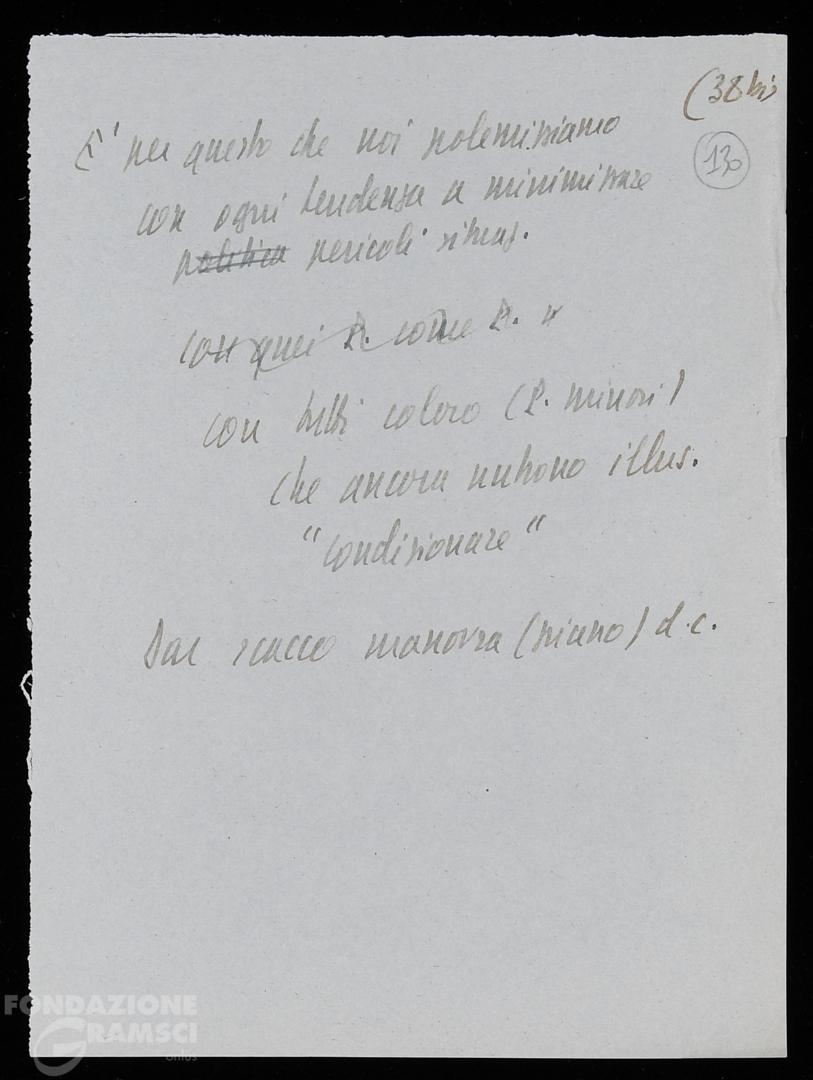 (38 bis
130
E' per questo che noi polemizziamo
con ogni tendenza a minimizzare
politica pericoli situaz.
con quei P. come P.
con tutti coloro (P. minori)
che ancora nutrono illus.
"condizionare"
Dar scacco manovra (piano) d.c.
FONDAZIONE
GRAMSCI
onlus